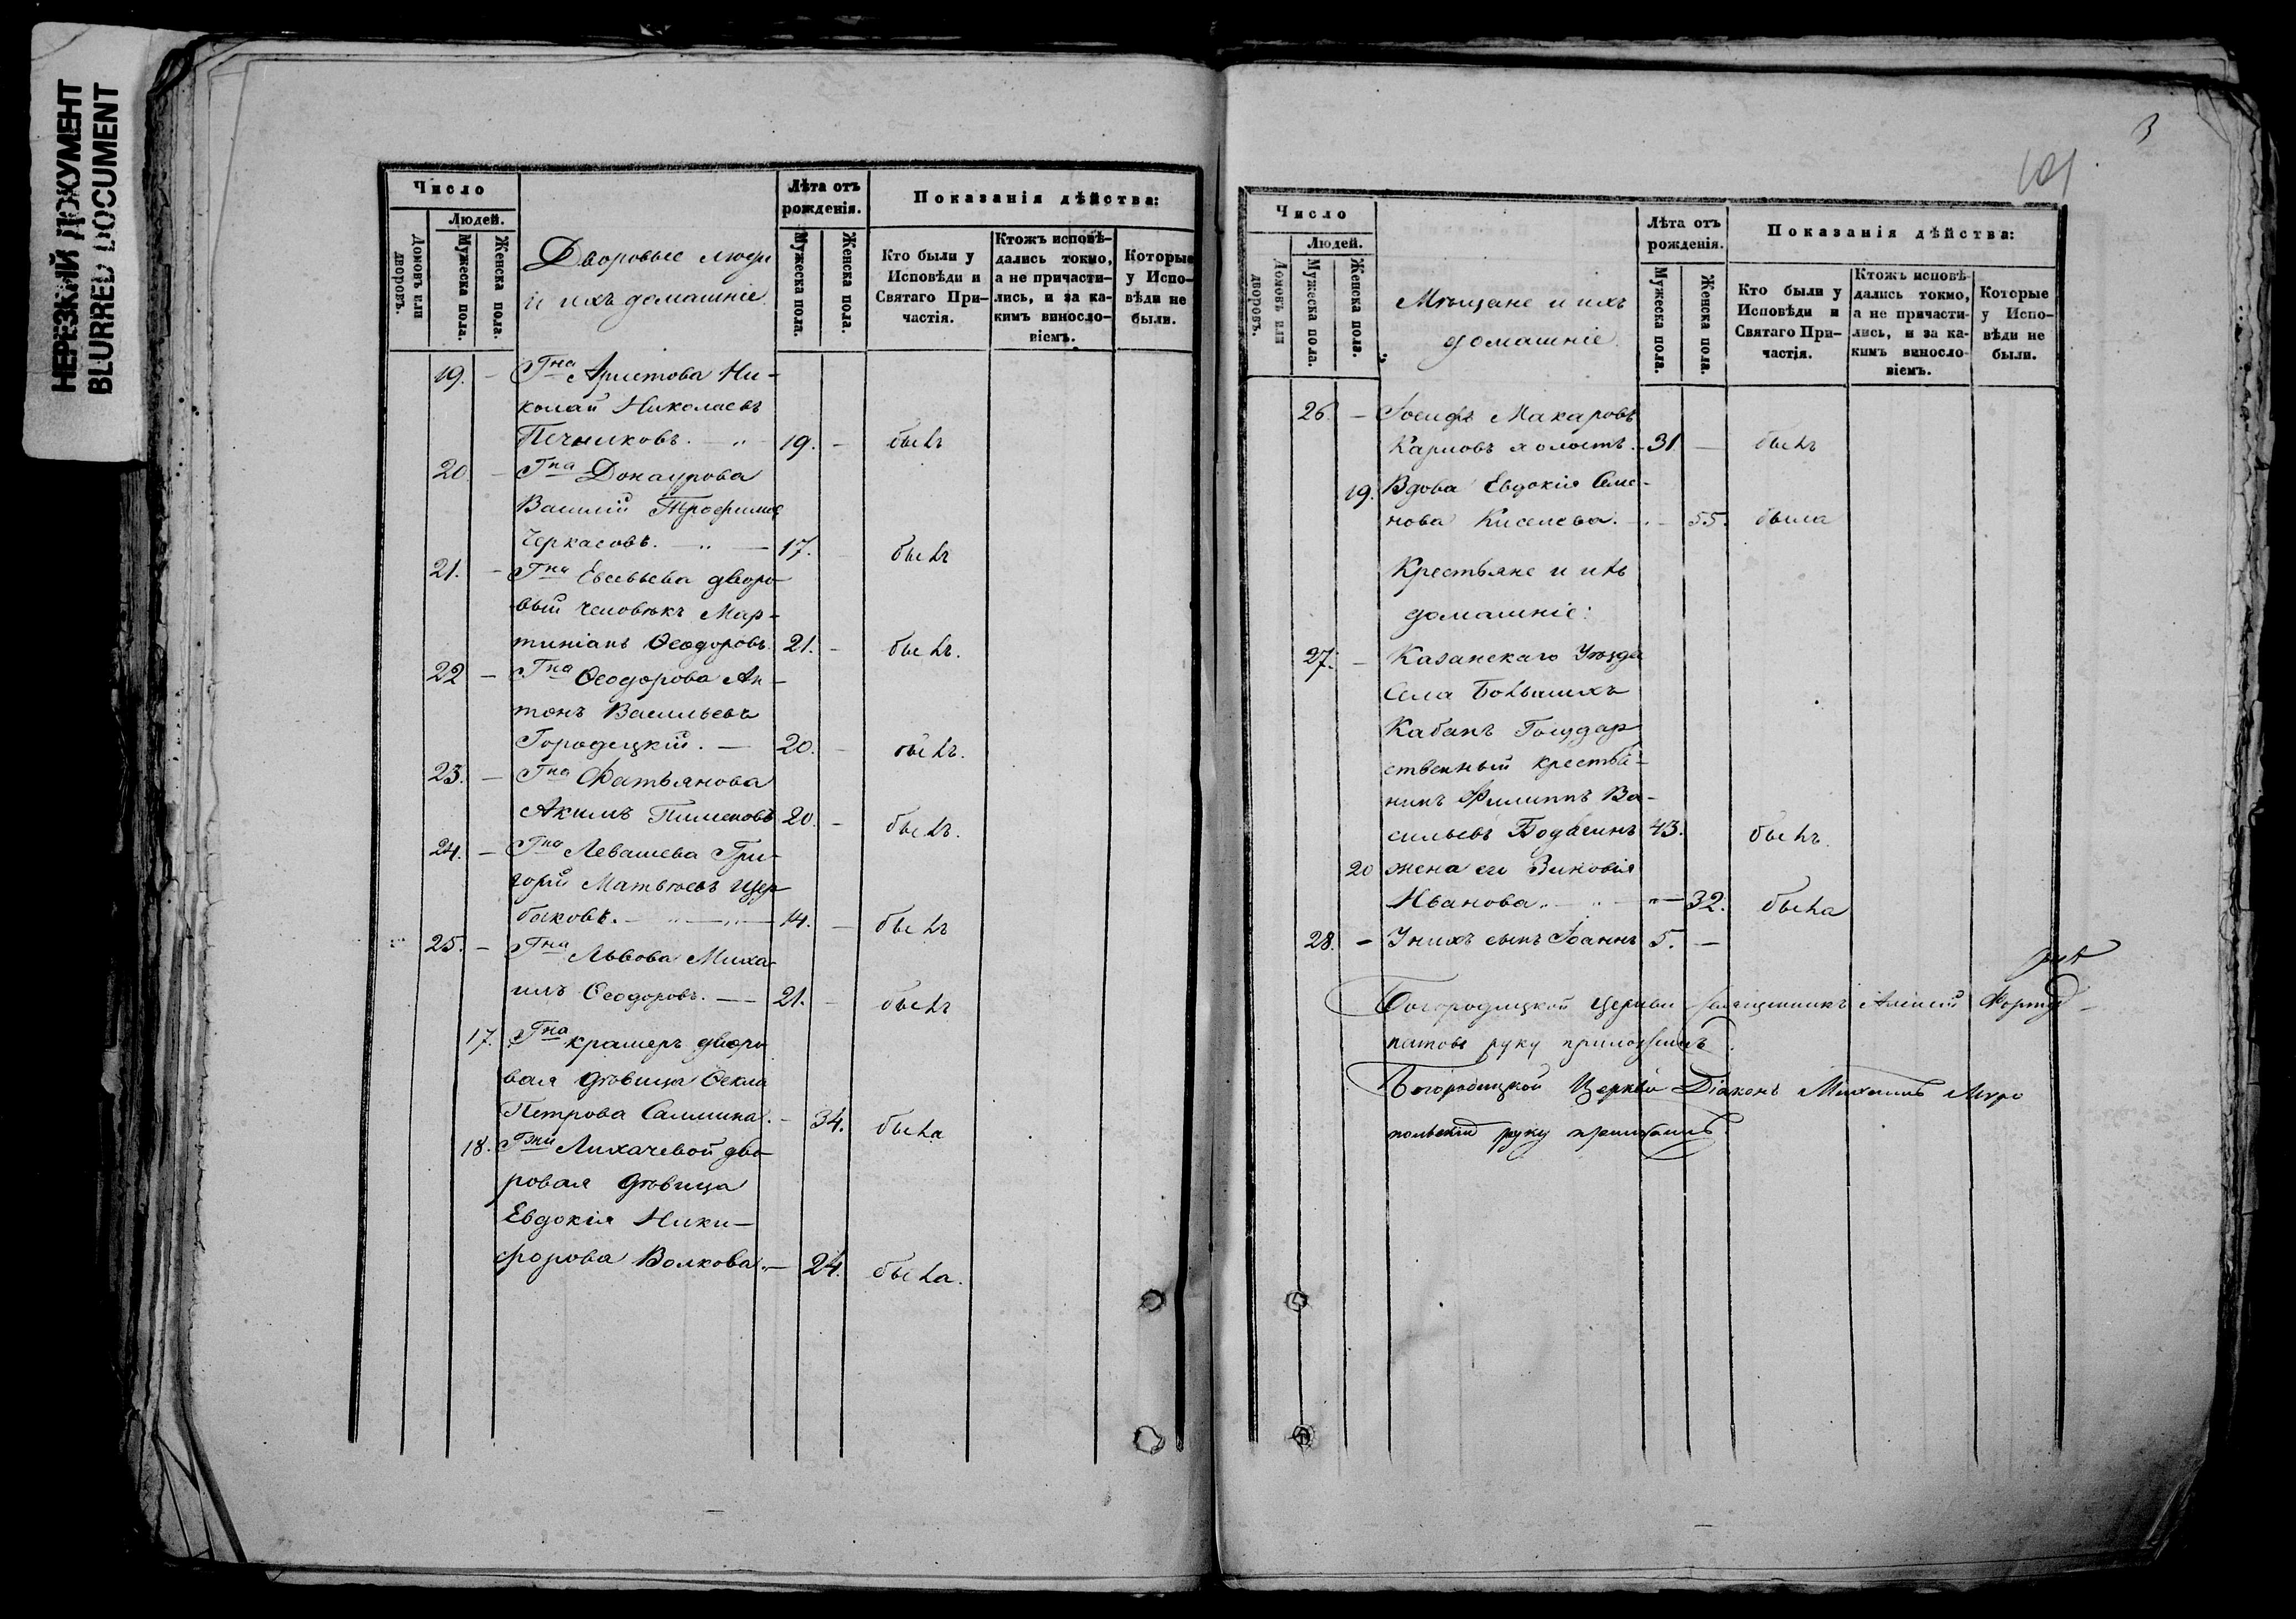 НЕРЕЗКИЙ ДОКУМЕНТ
BLURRED DOCUMENT
Число
Людей.
Домовъ или дворовъ.
Мужеска пола.
Женска пола.
Дворовые люди
и ихъ домашніе.
Лѣта отъ рожденія.
Мужеска пола.
Женска пола.
Показанія дѣйства:
Кто были у Исповѣди и Святаго Причастія.
Ктожъ исповѣдались токмо, а не причастились, и за какимъ винословіемъ.
Которые у Исповѣди не были.
19. — Гна Аристова Ни-
колай Николаевъ
Печниковъ. — 19. — былъ
20 — Гна Донаурова
Василий Трофимовъ
Черкасовъ. — 17. — былъ
21. — Гна Евсевьева дворо-
вый человѣкъ Мар-
тиніанъ Ѳеодоровъ. 21. — былъ.
22 — Гна Ѳеодорова Ан-
тонъ Васильевъ
Городецкій. — 20. — былъ.
23. — Гна Фатьянова
Акимъ Пименовъ 20. — былъ.
24. — Гна Левашева Гри-
горій Матвѣевъ Щер-
баковъ. — 14. — былъ
25. — Гна Львова Миха-
илъ Ѳеодоровъ. — 21. — былъ
17. Гна Крамеръ дворо
вая дѣвица Ѳекла
Петрова Салмина. — 34. была
18. Гжи Лихачевой дво-
ровая дѣвица
Евдокія Ники-
форова Волкова. — 24. была.
3
101
Число
Людей.
Домовъ или дворовъ.
Мужеска пола.
Женска пола.
Мѣщане и ихъ
домашніе.
Лѣта отъ рожденія.
Мужеска пола.
Женска пола.
Показанія дѣйства:
Кто были у Исповѣди и Святаго Причастія.
Ктожъ исповѣдались токмо, а не причастились, и за какимъ винословіемъ.
Которые у Исповѣди не были.
26. — Іосифъ Макаровъ
Карповъ холостъ. — 31 — былъ
19. Вдова Евдокія Семе-
нова Киселева. — 55. была
Крестьяне и ихъ
домашніе:
27. — Казанскаго Уѣзда
Села Большихъ
Кабанъ Государ
ственный крестья-
нинъ Филиппъ Ва-
сильевъ 43. былъ.
20 жена его Зиновія
Иванова. — 32. была
28. — У нихъ сынъ Іоаннъ 5. —
Богородицкой Церкви Священникъ Алексій
руку приложилъ.
Богородицкой Церкви Діаконъ Михаилъ Миро
польскій руку приложилъ.